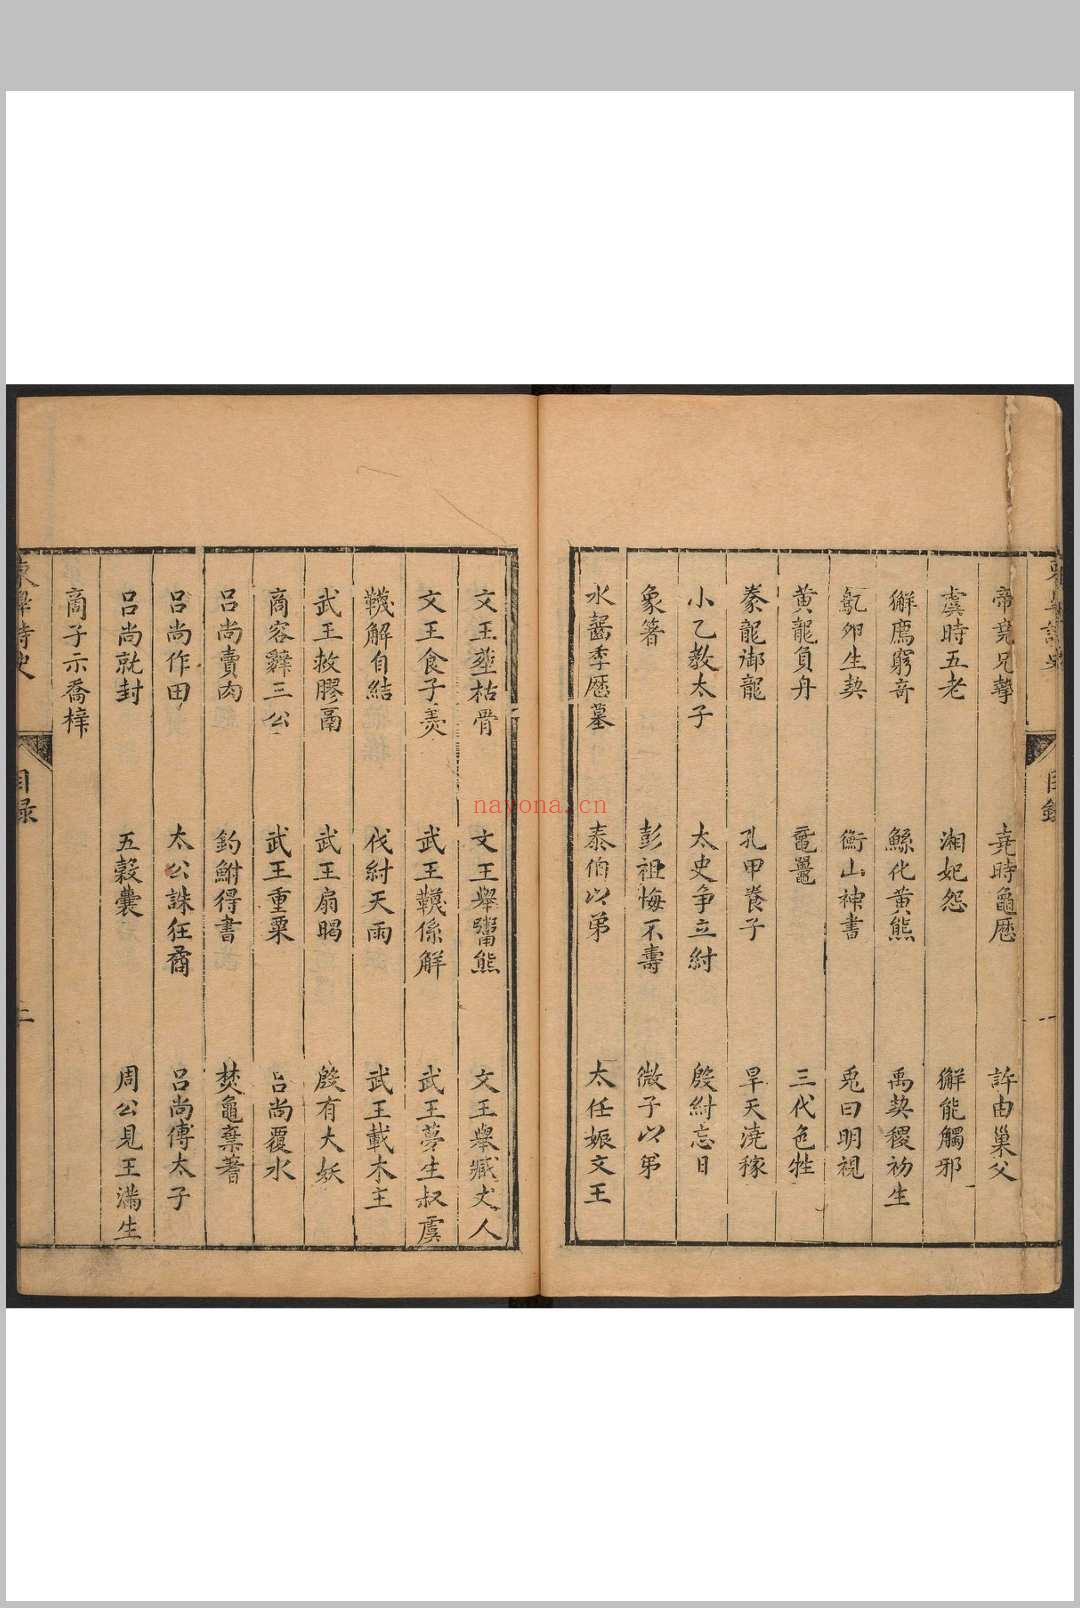 帝堯兄摯 堯時龜曆 許由巢父
虞時五老 湘妃怨 獬能觸邪
獬廌窮奇 鯀化黃熊 禹契稷初生
鳦卵生契 衡山神書 兎曰明視
黃龍負舟 黿鼉 三代色牲
豢龍御龍 孔甲養子 旱天澆稼
小乙教太子 太史爭立紂 殷紂忘日
象箸 彭祖悔不壽 微子以弟
水齧季曆墓 泰伯以弟 太任娠文王
目錄
一
文王葬枯骨 文王舉鬻熊 文王舉臧丈人
文王食子羹 武王韈係解 武王夢生叔虞
韈解自結 伐紂天雨 武王載木主
武王救膠鬲 武王扇暍 殷有大妖
商容辭三公 武王重粟 呂尚覆水
呂尚賣肉 釣鮒得書 焚龜棄蓍
呂尚作田 太公誅狂矞 呂尚傅太子
呂尚就封 五穀囊 周公見王滿生
商子示喬梓
目录
二
nayona.cn